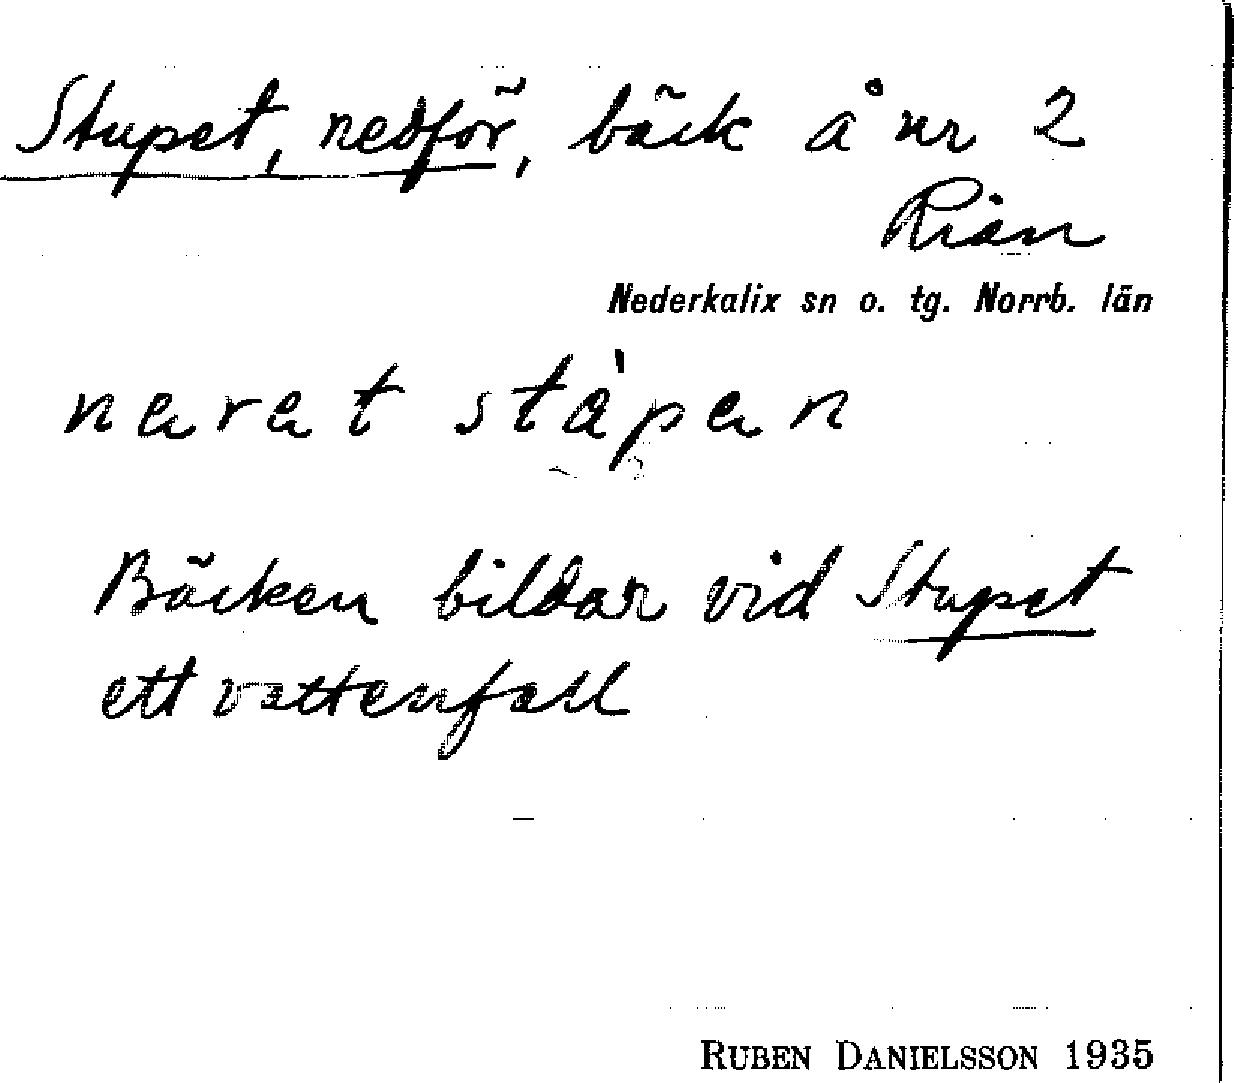 Stupet, nedför, bäck å nr 2
Rian
Nederkalix sn o. tg. Norrb. län
narat stàpan
Bäcken bildar vid Stupet
ett vattenfall
RUBEN DANIELSSON 1935